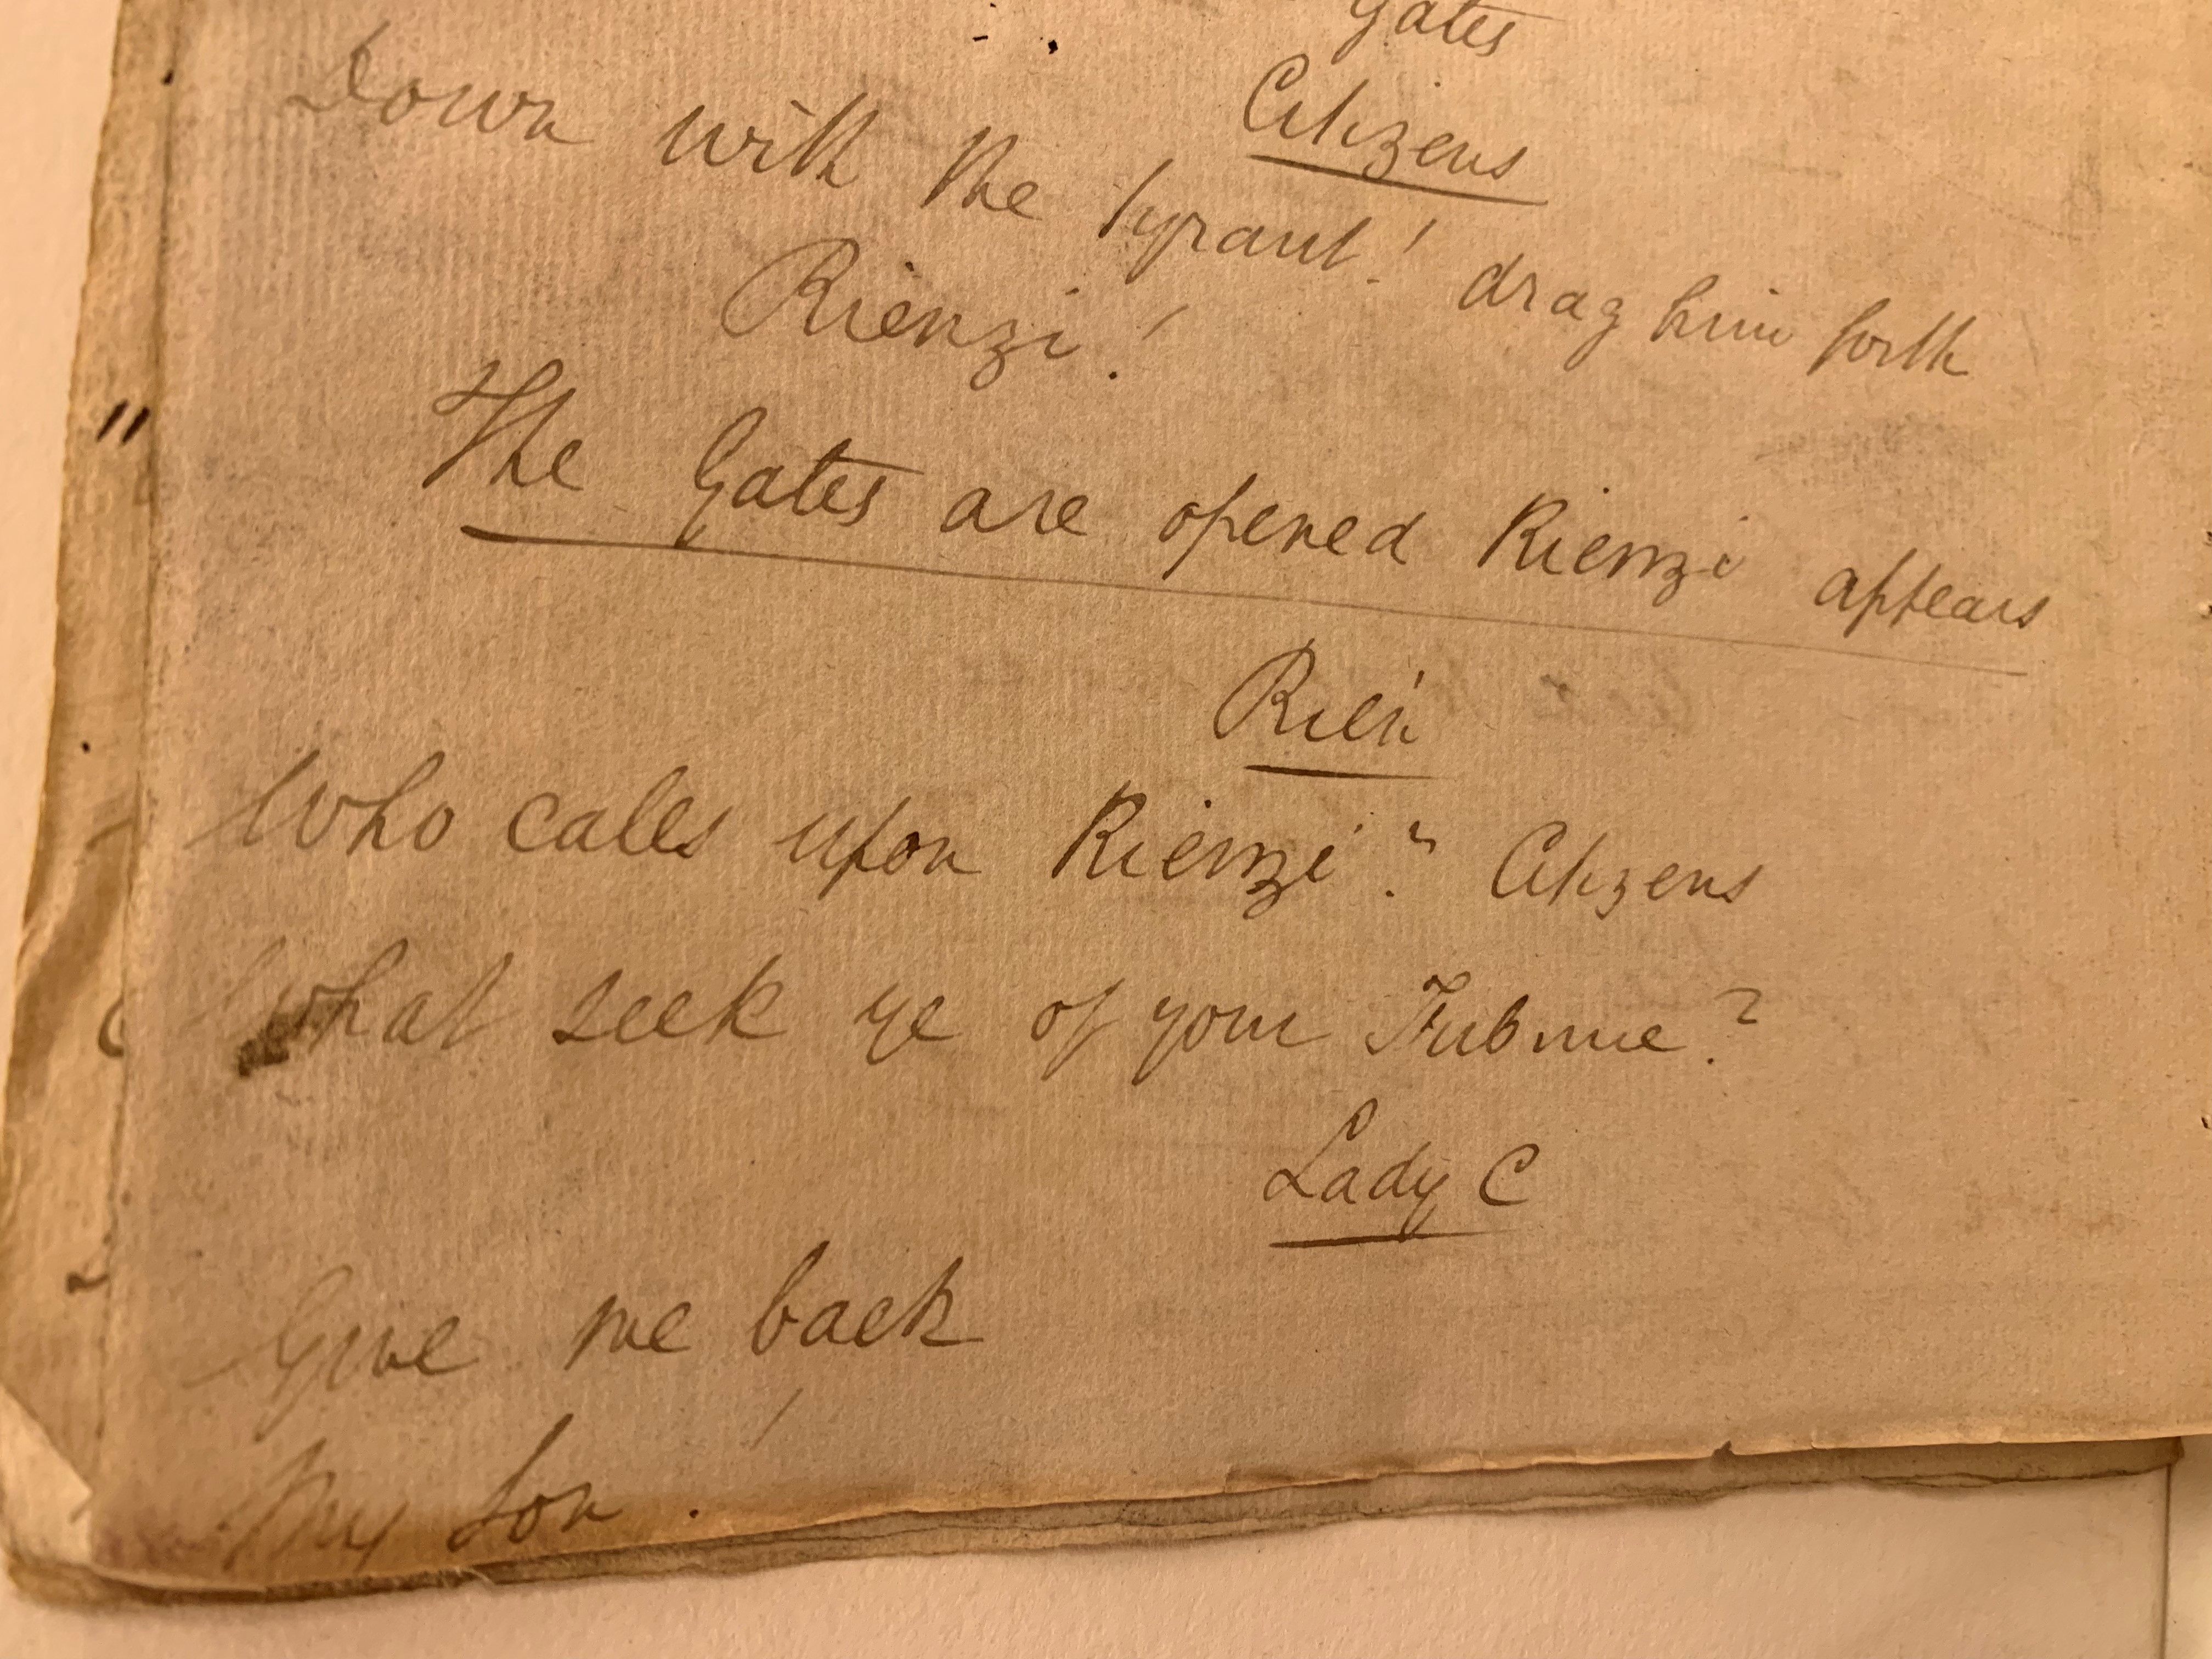 Gates
Citizens
Down with the tyrant! drag him forth
Rienzi!
The Gates are opened Rienzi appears
Rien
Who calls upon Rienzi? Citizens
What seek ye of your Tribune?
Lady C
Give me back
My Son!